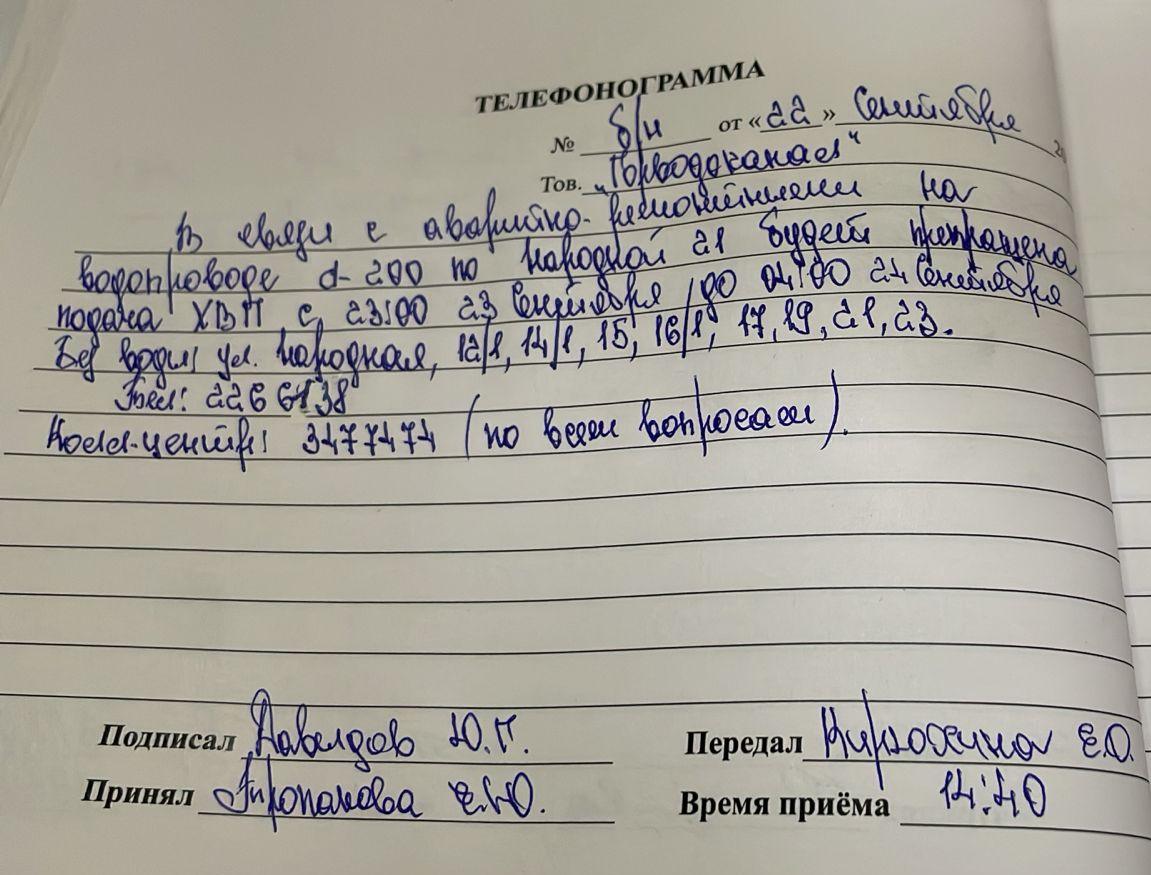 ТЕЛЕФОНОГРАММА
№ б/н от «22» Сентября
Тов. "Горводоканал"
В связи с аварийно-ремонтными на
водопроводе d-200 по Народной 21 будет прекращена
подача ХВП с 23:00 23 Сентября до 04:00 24 Сентября
Без воды ул. Народная, 12/1, 14/1, 15, 16/1, 17, 19, 21, 23.
Тел: 2266138
Колл-центр: 3477474 (по всем вопросам).
Подписал Давыдов Ю.Г. Передал Е.О.
Принял Е.Ю. Время приёма 14:40